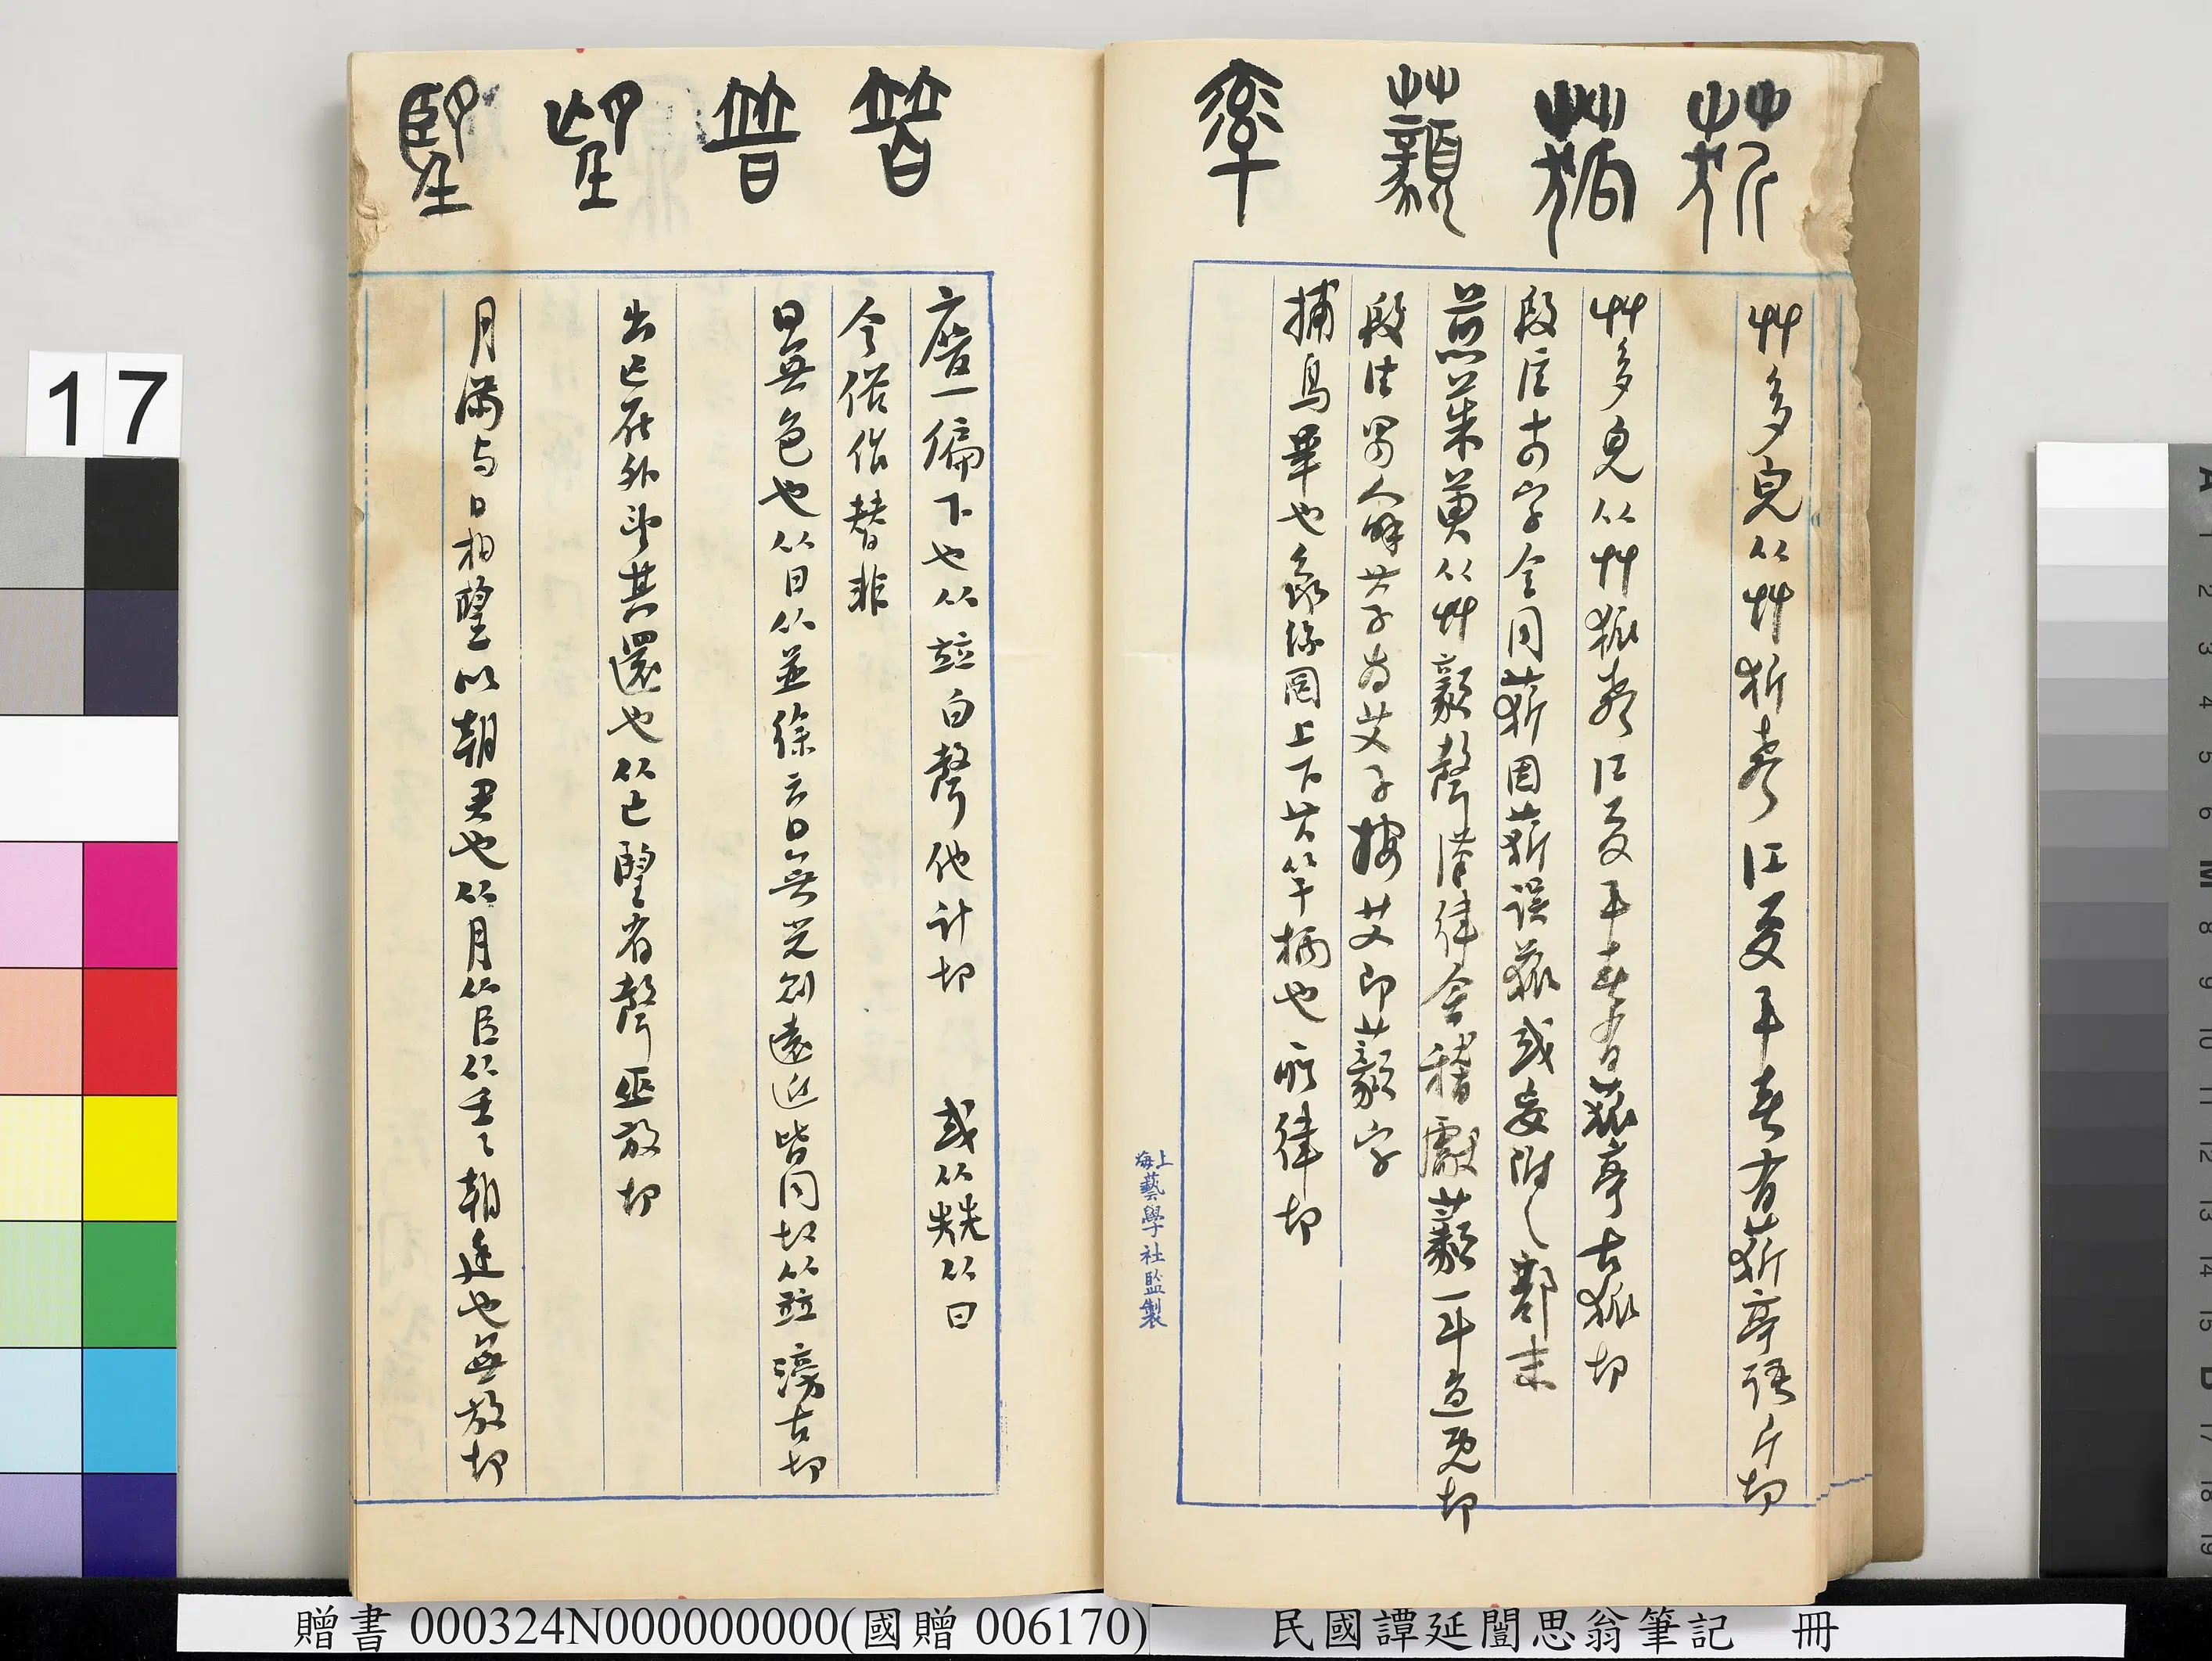 䓄
率
艸多皃从艸㹞聲江夏平春有䓄亭語斤切
艸多皃从艸狐聲江夏平春有亭古狐切
段注字今同䓄因䓄誤或妄附之部末
煎茱萸从艸聲漢律會稽獻藙一斗魚既切
段注蜀人其子為艾子按艾即藙字
捕鳥畢也象絲罔上下其竿柄也所律切
上海藝學社監製
暜
普
望
朢
廢一偏下也从竝白聲他計切 或从兟从曰
今俗作替非
日無色也从日从並徐云日無光則遠近皆同故从竝滂古切
出亡在外望其還也从亡朢省聲巫放切
月滿与日相朢以朝君也从月从臣从壬〻朝廷也無放切
17
贈書 000324N000000000(國贈 006170)
民國譚延闓思翁筆記 冊